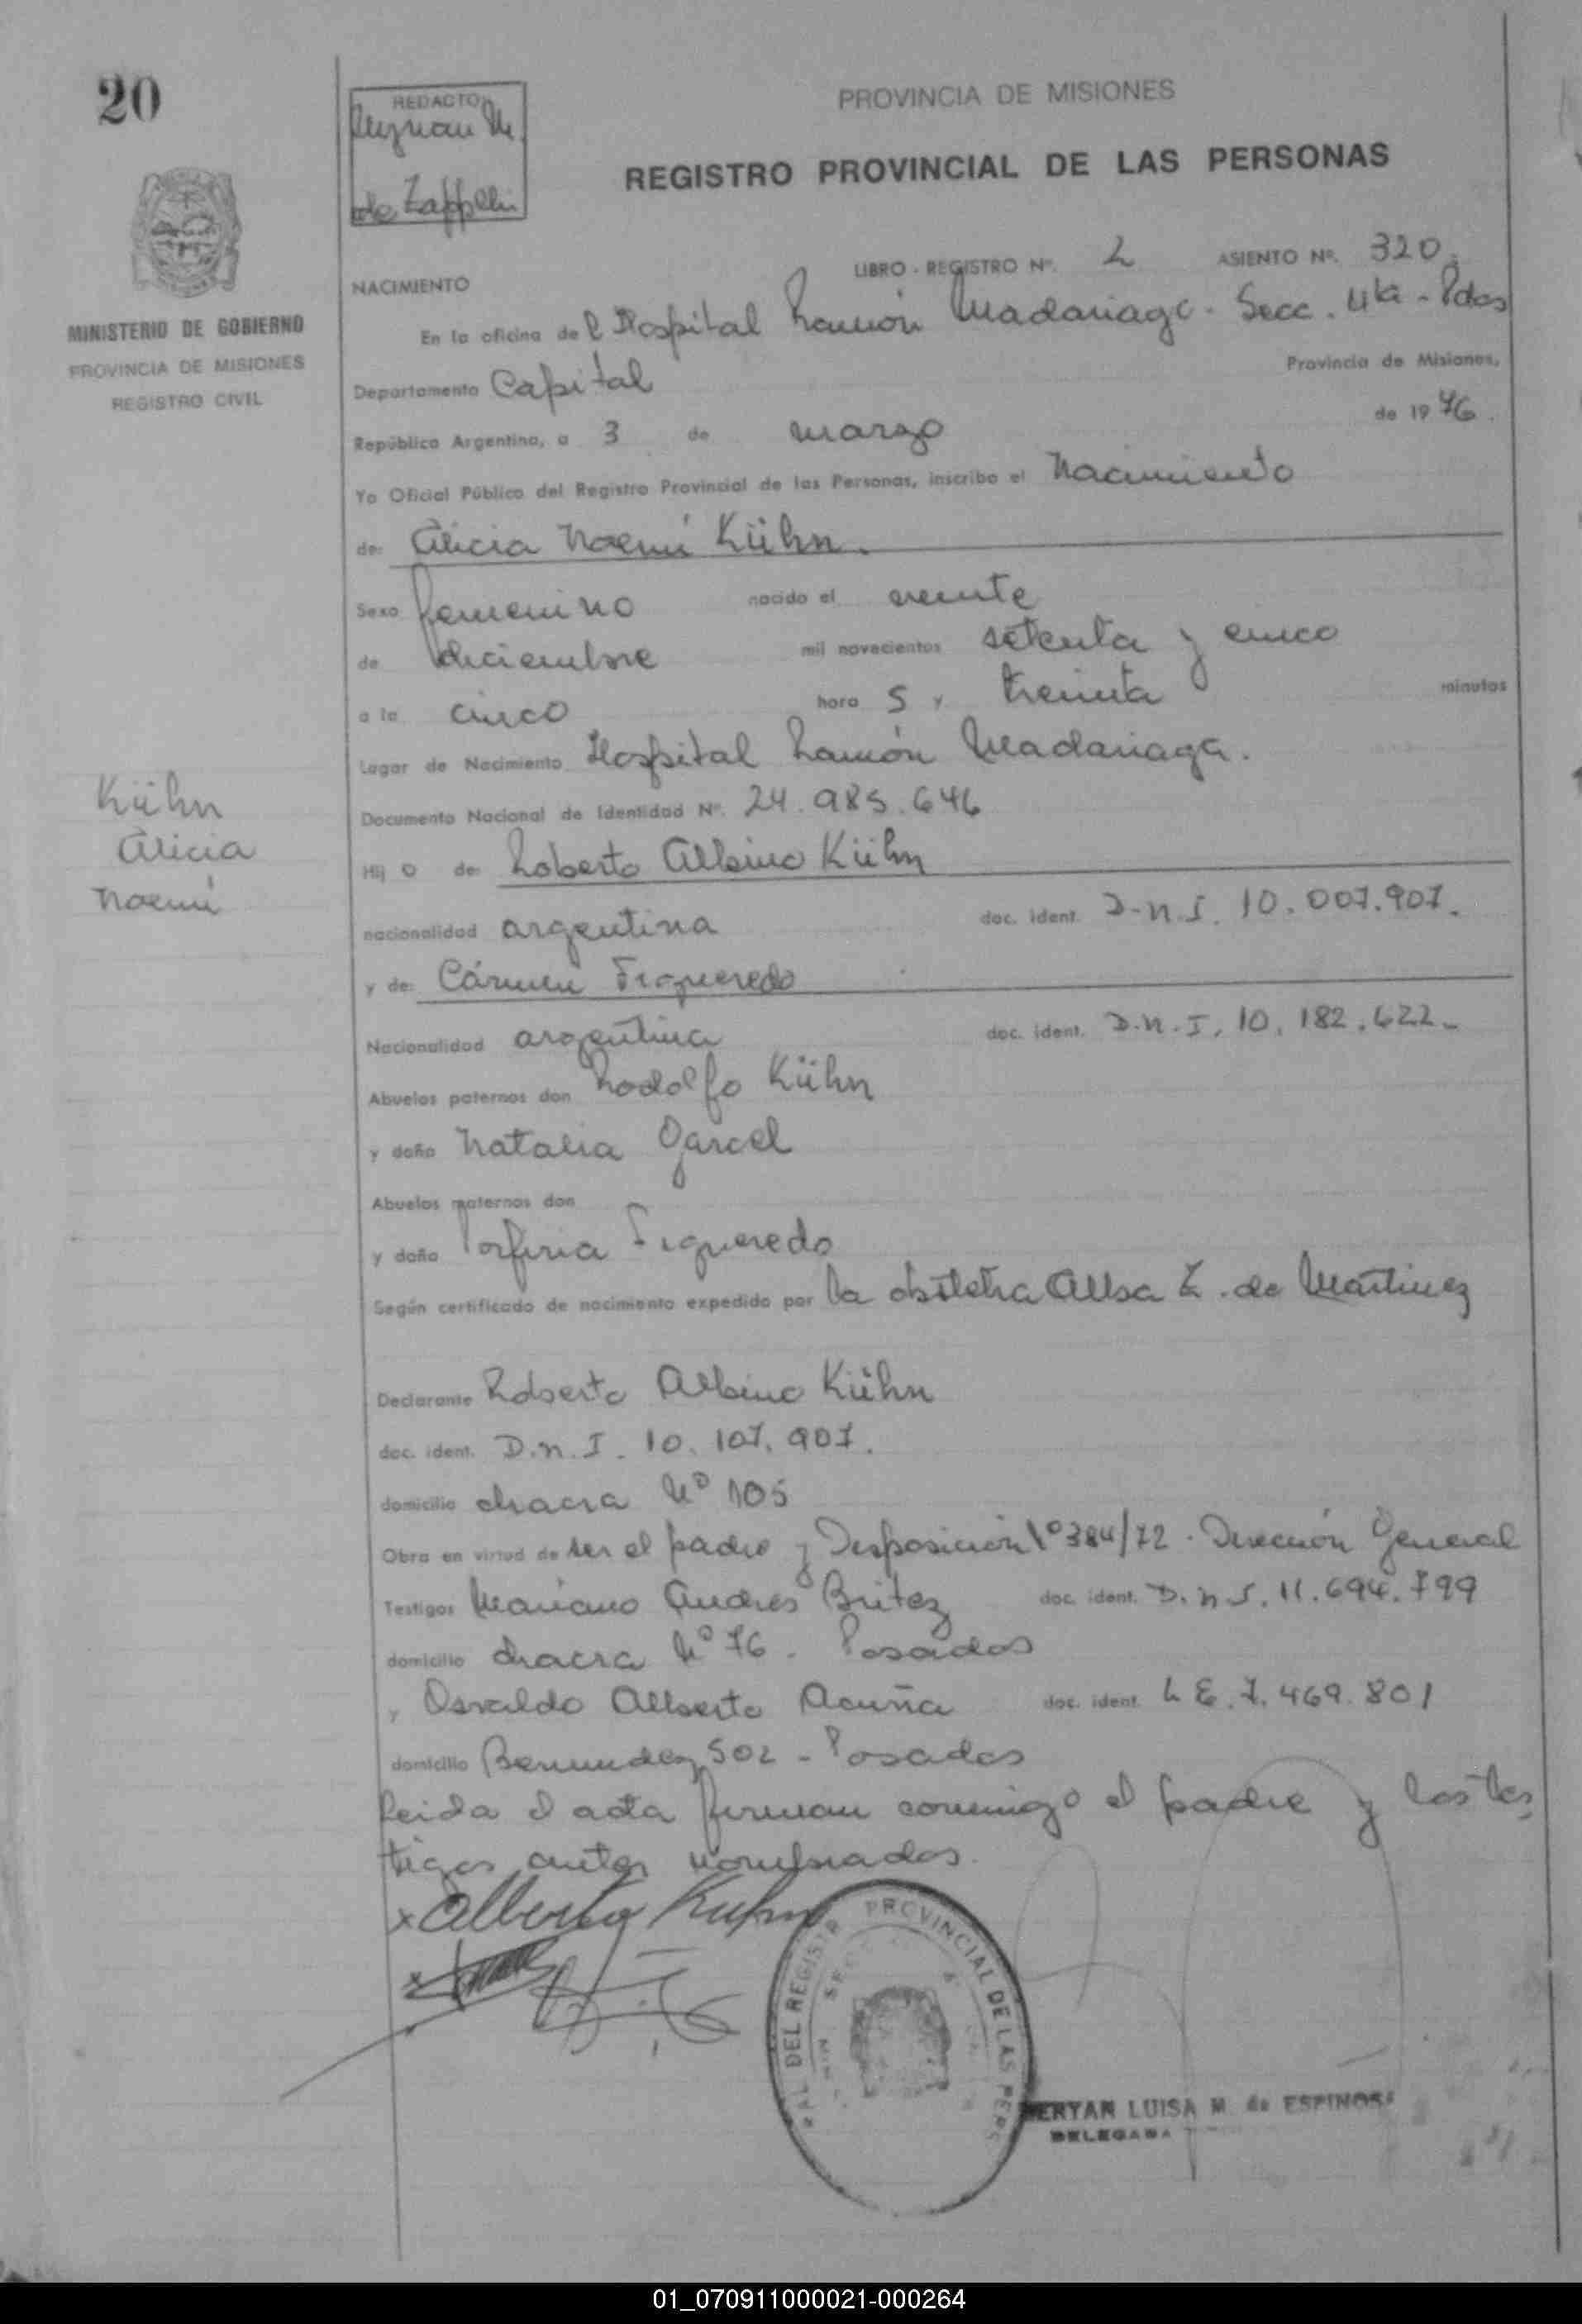 20
REDACTO
de Zappelli
PROVINCIA DE MISIONES
REGISTRO PROVINCIAL DE LAS PERSONAS
MINISTERIO DE GOBIERNO
PROVINCIA DE MISIONES
REGISTRO CIVIL
LIBRO - REGISTRO Nº. 2 ASIENTO Nº. 320.
NACIMIENTO
En la oficina del Hospital Ramón Madariaga - Secc. 4ta - Pdas
Departamento Capital Provincia de Misiones,
República Argentina, a 3 de marzo de 1976.
Yo Oficial Público del Registro Provincial de las Personas, inscribo el Nacimiento
de: Alicia Noemí Kühn.
Sexo femenino nacido el veinte
de diciembre mil novecientos setenta y cinco
a la cinco hora s y treinta minutos
Lugar de Nacimiento Hospital Ramón Madariaga.
Documento Nacional de Identidad Nº. 24.985.646
Kühn
Alicia
Noemí
Hij o de: Roberto Albino Kühn
nacionalidad argentina doc. ident. D.N.I. 10.007.907.
y de: Cármen Figueredo
Nacionalidad argentina doc. ident. D.N.I. 10.182.622.
Abuelos paternos don Rodolfo Kühn
y doña Natalia Garcel
Abuelos maternos don
y doña Porfiria Figueredo
Según certificado de nacimiento expedido por la obstetra Alba Z. de Martinez
Declarante Roberto Albino Kühn
doc. ident. D.N.I. 10.107.907.
domicilio chacra Nº 105
Obra en virtud de ser el padre y Disposición Nº 384/72 - Dirección General
Testigos Mariano Andres Britez doc. ident. D.N.I. 11.694.799
domicilio chacra Nº 76. Posadas
y Osvaldo Alberto Acuña doc. ident. L E. 7.469.801
domicilio Bermudez 502 - Posadas
Leida el acta firman conmigo el padre y los tes
tigos antes nombrados.
x Alberto Kuhn
PROVINCIAL DE LAS PERS
DEL REGISTR
ERYAN LUISA M. de ESPINOSA
DELEGADA
01_070911000021-000264